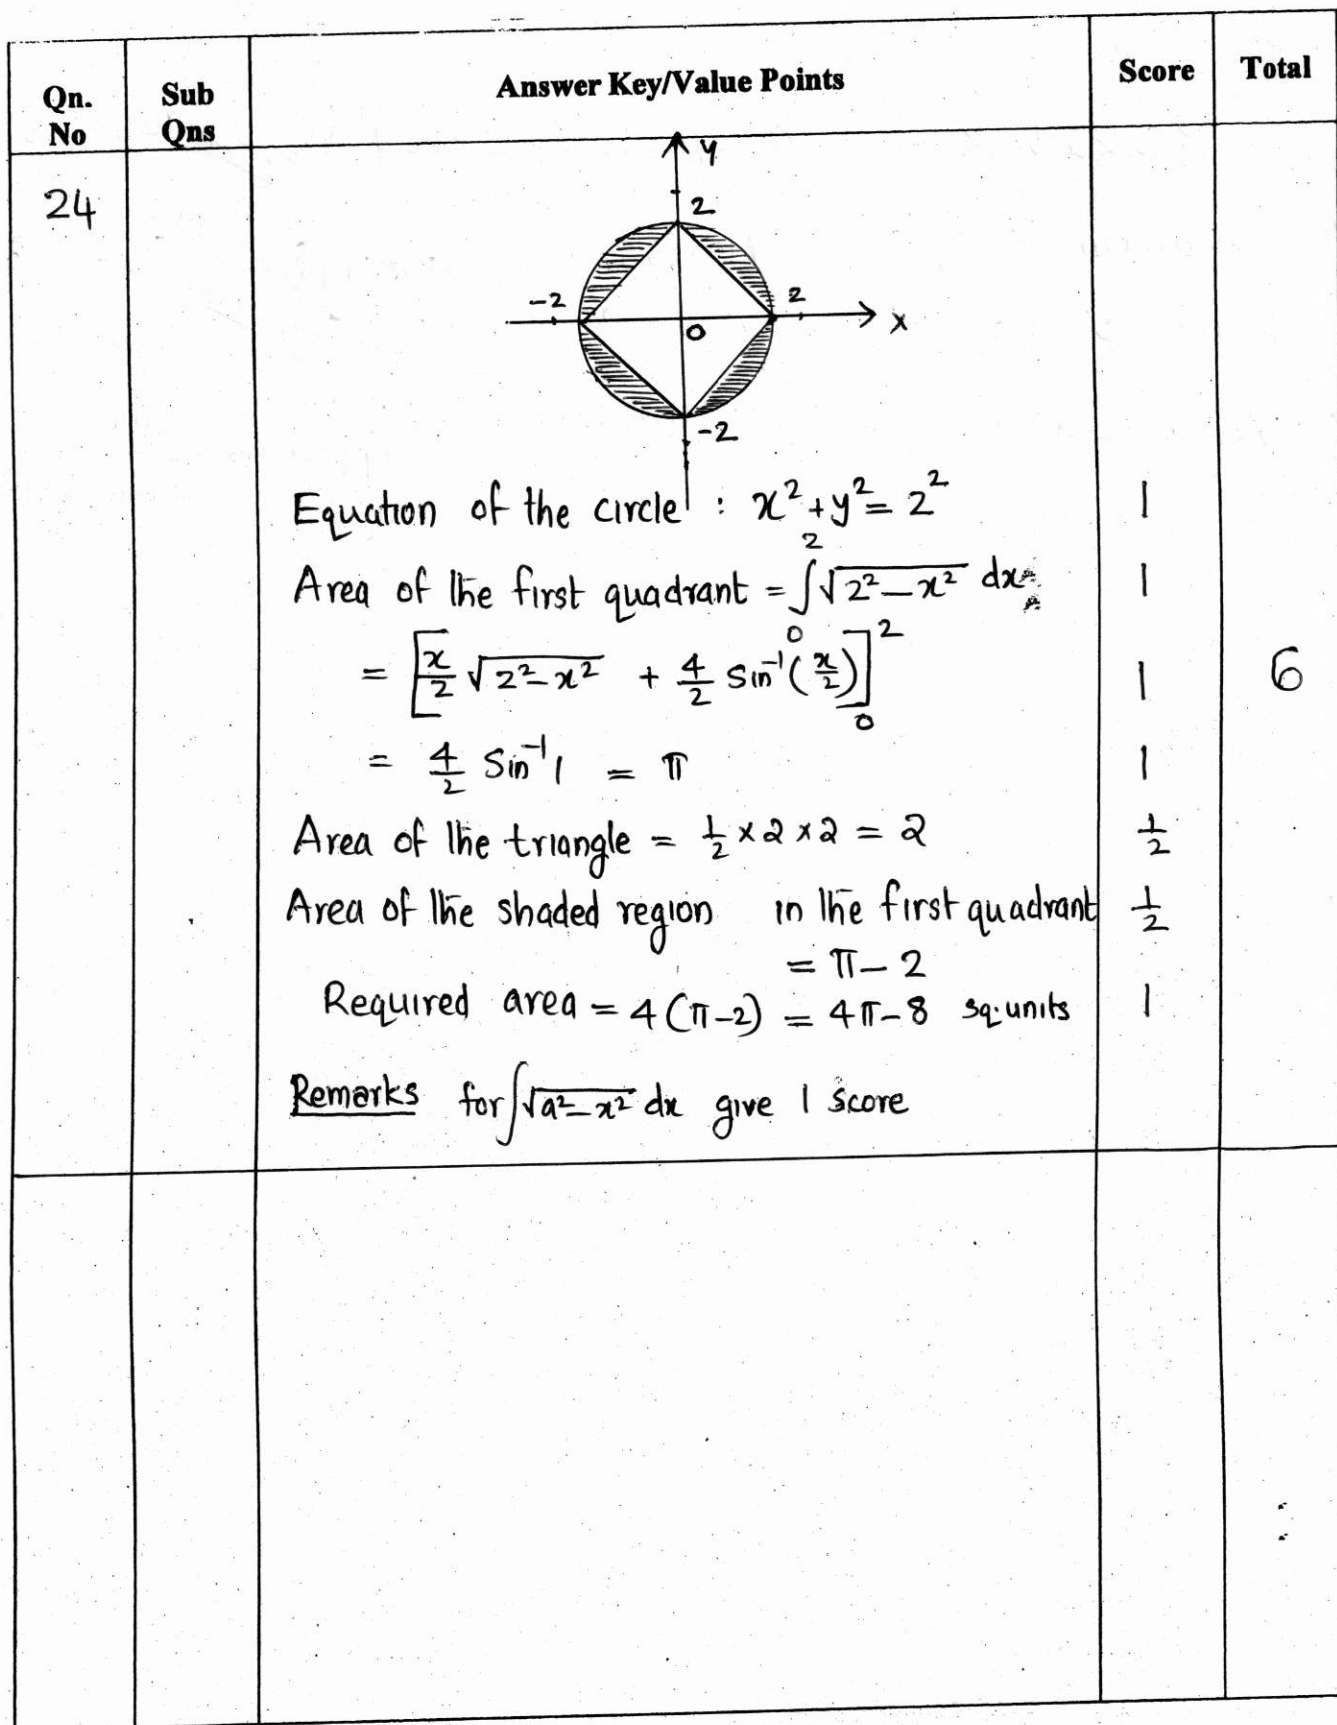 Qn. No
Sub Qns
Answer Key/Value Points
Score
Total
24
y
2
-2
2
0
x
-2
Equation of the circle : x² + y² = 2² 1
Area of the first quadrant = ∫₀² √(2² – x²) dx 1
= [x/2 √(2² – x²) + 4/2 Sin⁻¹(x/2)]₀² 1 6
= 4/2 Sin⁻¹1 = π 1
Area of the triangle = 1/2 × 2 × 2 = 2 1/2
Area of the shaded region in the first quadrant 1/2
= π – 2
Required area = 4(π – 2) = 4π – 8 sq.units 1
Remarks for ∫√(a² – x²) dx give 1 score